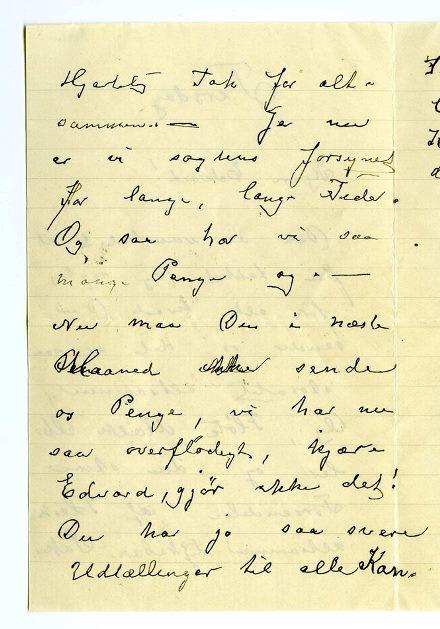 Hjertelig Tak for alt-
sammen. — Ja nu
er vi sagtens forsynet
for lange, lange Tider.
Og saa har vi saa
mange Penge og. —
Nu maa Du i næste
Maaned ikke sende
os Penge, vi har nu
saa overflødigt, kjære
Edvard, gjør ikke det!
Du har jo saa svære
Udtællinger til alle Kan-